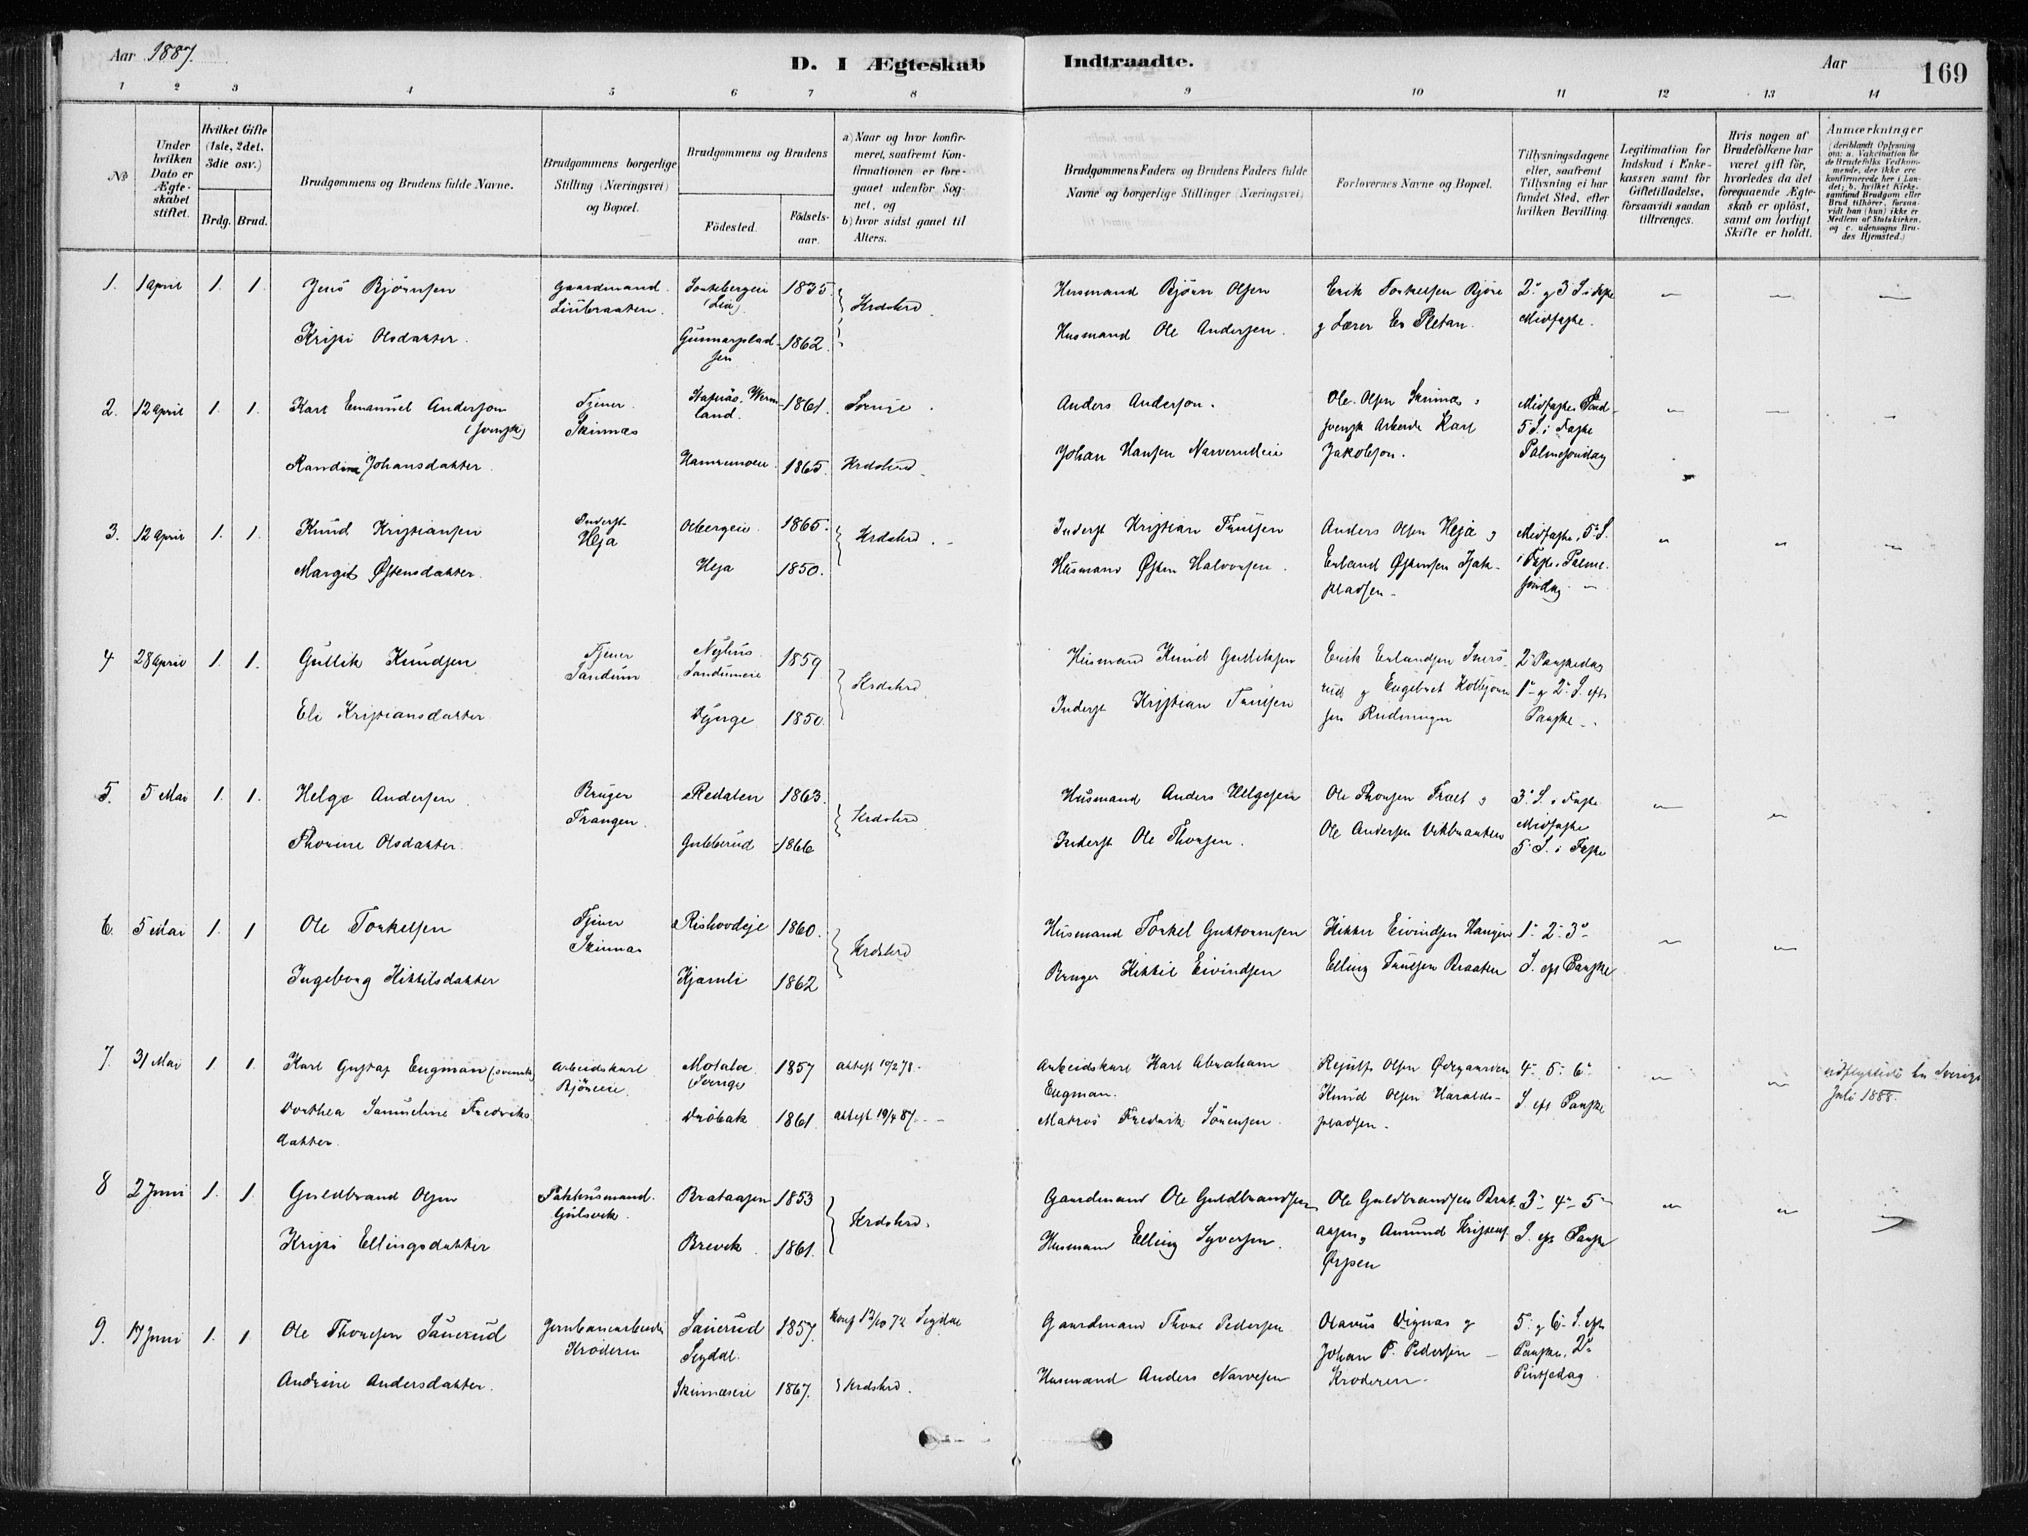 Aar 1887.
D. I Ægteskab Indtraadte.
Aar
169
1 2 3 4 5 6 7 8 9 10 11 12 13 14
№
Under hvilken Dato er Ægteskabet stiftet.
Hvilket Gifte (1ste, 2det, 3die osv.)
Brdg. Brud.
Brudgommens og Brudens fulde Navne.
Brudgommens borgerlige Stilling (Næringsvei) og Bopæl.
Brudgommens og Brudens
Födested. Födselsaar.
a) Naar og hvor konfirmeret, saafremt Konfirmationen er foregaaet udenfor Sognet, og
b) hvor sidst gaaet til Alters.
Brudgommens Faders og Brudens Faders fulde Navne og borgerlige Stillinger (Næringsvei)
Forlovernes Navne og Bopæl.
Tillysningsdagene eller, saafremt Tillysning ei har fundet Sted, efter hvilken Bevilling.
Legitimation for Indskud i Enkekassen samt for Giftetilladelse, forsaavidt saadan tiltrænges.
Hvis nogen af Brudefolkene har været gift för, hvorledes da det foregaaende Ægteskab er oplöst, samt om lovligt Skifte er holdt.
Anmærkninger (deriblandt Oplysning om: a. Vakcination for de Brudefolks Vedkommende, der ikke ere konfirmerede her i Landet; b. hvilket Kirkesamfund Brudgom eller Brud tilhörer, forsaavidt han (hun) ikke er Medlem af Statskirken, og c. udensogns Brudes Hjemsted.)
1. 1 April 1. 1. Jens Bjørnsen Gaardmand 1835 Krdshrd Husmand Bjørn Olsen Erik Torkelsen Bjøre 2' g 3' S. i
Kristi Olsdatter. Gunnarspladsen 1862. Husmand Ole Andersen. g Lærer Es Pletan. Midfaste.
2. 12 April 1. 1. Karl Emanuel Anderson Tjener Skinnes Wermland. 1861. Anders Anderson. Ole Olsen Skinnes g Midfaste
(svensk) svensk Arbeider Karl 5 S. i Faste
Randine Johansdatter. 1865. Krdshrd. Johan Hansen Narverudeie Jakobson. Palmesøndag
3. 12 April 1. 1. Knud Kristiansen Inderst Heja 1865. Krdshrd. Inderst Kristian Truelsen Anders Olsen Heja g Midfaste, 5' S.
Margit Østensdatter. Heja 1850. Husmand Østen Halvorsen. Erland Østensen i Faste Palmesøndag
4 28 April 1. 1. Gullik Knudsen Tjener Sandum Nyhus Sandumeie 1859 Krdshrd. Husmand Knud Gulliksen Erik Erlandsen 2' Paaskedag
Eli Kristiansdatter. 1850. Inderst Kristian Truelsen g Engebret 1' g 2' S. eft Paaske
5. 5 Mai 1. 1. Helge Andersen Bruger Trangen. Redalen 1863. Krdshrd. Husmand Anders Helgesen Ole Thoresen g 3' S. i Faste
Thorine Olsdatter. Gubberud 1866 Inderst Ole Thoresen. Ole Andersen Vikbraaten Midfaste 5' S. i Faste
6. 5 Mai 1. 1 Ole Torkelsen Tjener Skinnes Rishovdeje 1860. Krdshrd Husmand Torkel Guttormsen Eivindsen 1' 2' 3'
Ingeborg Kittilsdatter Kjemli 1862 Bruger Kittil Eivindsen Elling Truelsen Braaten S. eft Paaske
7. 31 Mai 1. 1. Karl Gustaf Engman (svensk) Arbeidskarl Bjøreeie. Motala Sverige 1857 Arbeidskarl Karl Abraham Engman. Olsen Ødegaarden 4' 5' 6' Juli 1888.
Dorthea Samueline Fredriksdatter. Drøbak 1861. attest 19/4 87. Matros Fredrik Sørensen. Knud Olsen Haraldspladsen. S. eft Paaske
8 2 Juni 1. 1. Guldbrand Olsen Gulsvik. Brataasen 1853 Krdshrd. Gaardmand Ole Guldbrandsen Ole Guldbrandsen Brataasen g 3' 4' 5'
Kristi Ellingsdatter Brevik 1861. Husmand Elling Syversen. Amund Kristensen Ørpen S. eft Paaske
9. 17 Juni 1. 1. Ole Thoresen Sauerud Jernbanearbeider Krøderen Sauerud Sigdal. 1857. Konf 13/10 72 Sigdal Gaardmand Thore Pedersen Olavus Vignas g 5' g 6' S. eft
Andrine Andersdatter. Skinneseie 1867. Krdshrd. Husmand Anders Narvesen Johan P. Pedersen Krøderen. Paaske, 2' Pintsedag